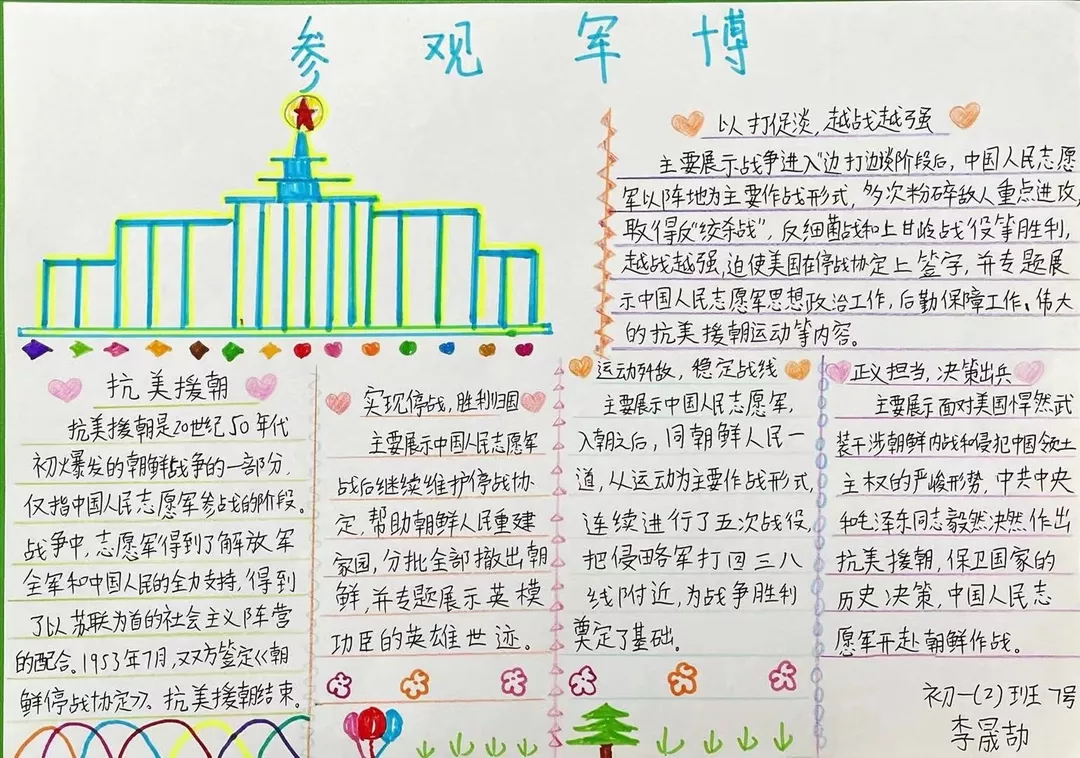 参观军博
以打促淡，越战越强
主要展示战争进入"边打边谈阶段后，中国人民志愿
军以阵地为主要作战形式，多次粉碎敌人重点进攻，
取得反"绞杀战"，反细菌战和上甘岭战役等胜利，
越战越强，迫使美国在停战协定上签字，并专题展
示中国人民志愿军思想政治工作，后勤保障工作、伟大
的抗美援朝运动等内容。
抗美援朝
抗美援朝是20世纪50年代
初爆发的朝鲜战争的一部分，
仅指中国人民志愿军参战的阶段。
战争中，志愿军得到了解放军
全军和中国人民的全力支持，得到
了以苏联为首的社会主义阵营
的配合。1953年7月，双方签定《朝
鲜停战协定》，抗美援朝结束。
实现停战，胜利归国
主要展示中国人民志愿军
战后继续维护停战协
定，帮助朝鲜人民重建
家园，分批全部撤出朝
鲜，并专题展示英模
功臣的英雄世迹。
运动歼敌，稳定战线
主要展示中国人民志愿军，
入朝之后，同朝鲜人民一
道，从运动为主要作战形式，
连续进行了五次战役，
把侵略军打回三八
线附近，为战争胜利
奠定了基础。
正义担当，决策出兵
主要展示面对美国悍然武
装干涉朝鲜内战和侵犯中国领土
主权的严峻形势，中共中央
和毛泽东同志毅然决然作出
抗美援朝，保卫国家的
历史决策，中国人民志
愿军开赴朝鲜作战。
初一(2)班 7号
李晟劼